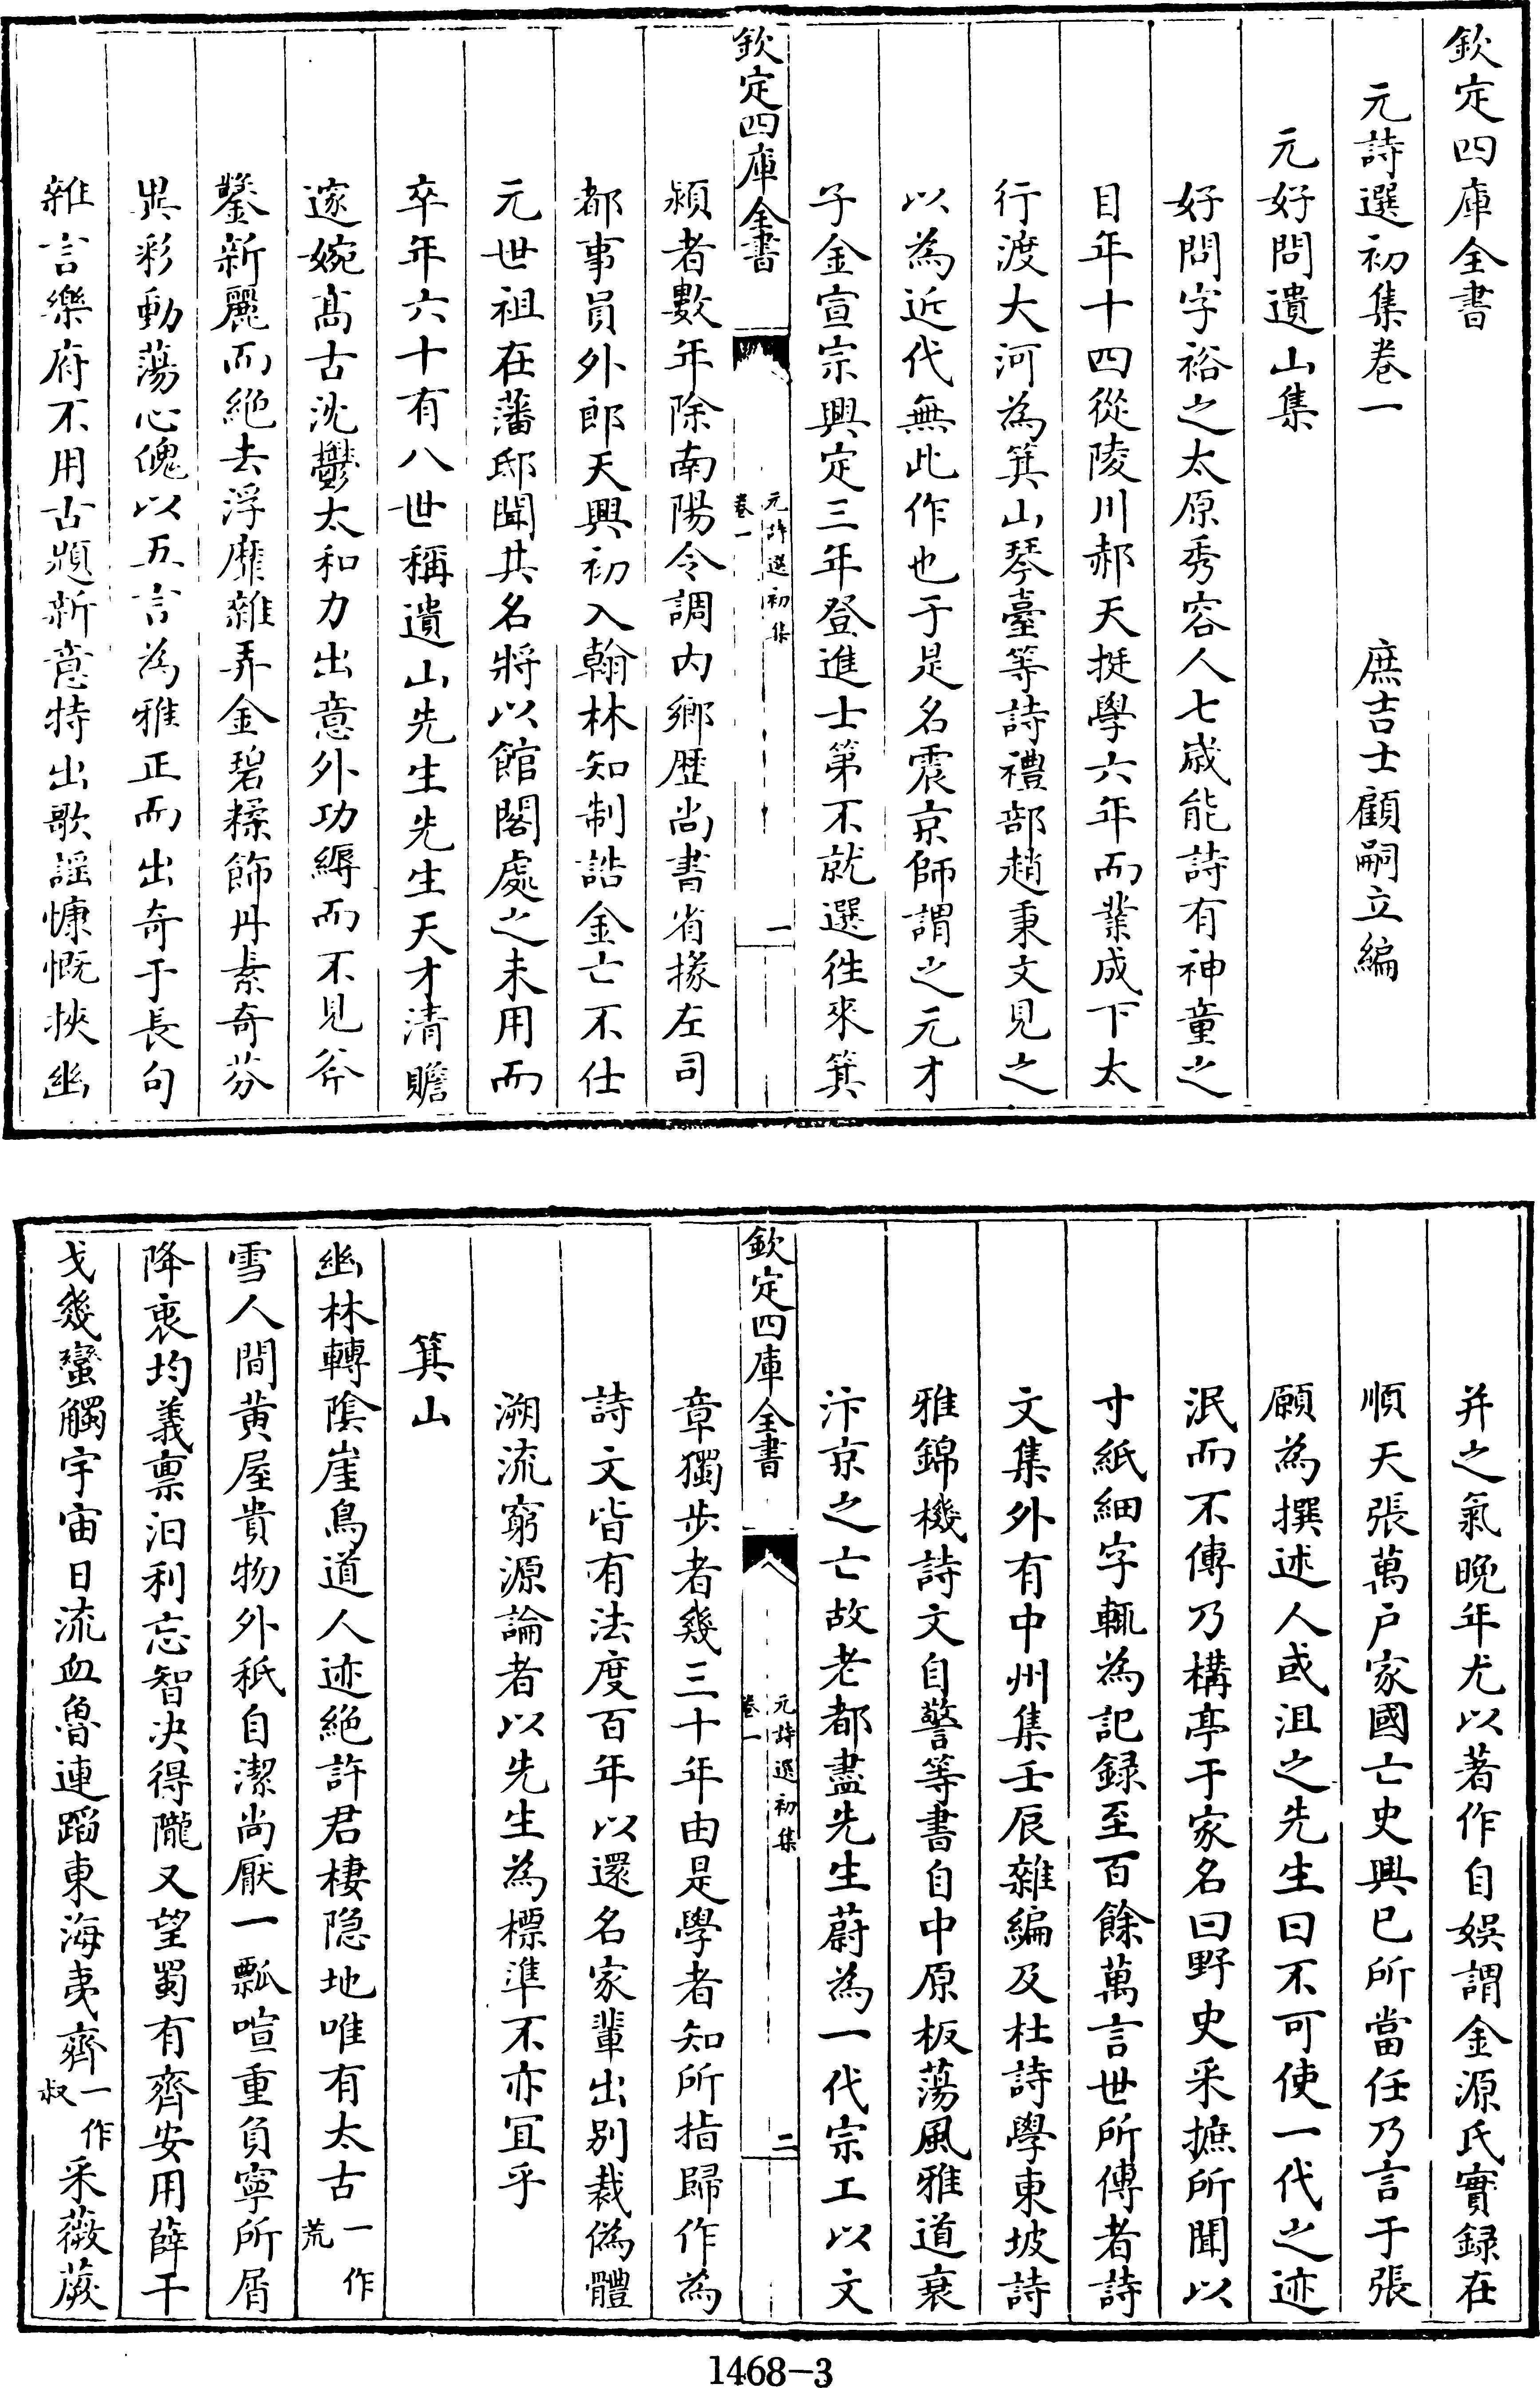 欽定四庫全書
元詩選初集卷一　庶吉士顧嗣立編
元好問遺山集
好問字裕之太原秀容人七歳能詩有神童之
目年十四從陵川郝天挺學六年而業成下太
行渡大河為箕山琴臺等詩禮部趙秉文見之
以為近代無此作也于是名震京師謂之元才
子金宣宗興定三年登進士第不就選徃來箕
欽定四庫全書
元詩選初集
卷一
一
潁者數年除南陽令調内鄉歴尚書省掾左司
都事員外郎天興初入翰林知制誥金亡不仕
元世祖在藩邸聞其名將以館閣處之未用而
卒年六十有八世稱遺山先生先生天才清贍
邃婉髙古沈鬱太和力出意外功縟而不見斧
鑿新麗而絶去浮靡雜弄金碧糅飾丹素奇芬
異彩動蕩心魄以五言為雅正而出奇于長句
雜言樂府不用古題新意特出歌謡慷慨挾幽
并之氣晚年尤以著作自娯謂金源氏實録在
順天張萬户家國亡史興已所當任乃言于張
願為撰述人或沮之先生曰不可使一代之迹
泯而不傳乃構亭于家名曰野史采摭所聞以
寸紙細字輒為記録至百餘萬言世所傳者詩
文集外有中州集壬辰雜編及杜詩學東坡詩
雅錦機詩文自警等書自中原板蕩風雅道衰
汴京之亡故老都盡先生蔚為一代宗工以文
欽定四庫全書
元詩選初集
卷一
二
章獨步者幾三十年由是學者知所指歸作為
詩文皆有法度百年以還名家輩出别裁偽體
溯流窮源論者以先生為標準不亦宜乎
箕山
幽林轉陰崖鳥道人迹絶許君棲隐地唯有太古一作荒
雪人間黄屋貴物外秪自潔尚厭一瓢喧重負寧所屑
降衷均義禀汨利忘智决得隴又望蜀有齊安用薛干
戈幾蠻觸宇宙日流血魯連蹈東海夷齊一作叔采薇蕨
1468-3